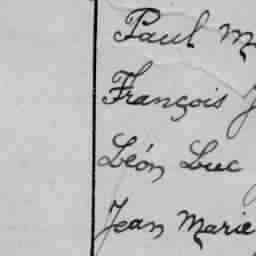 Paul M
François J
Léon Luc
Jean Marie